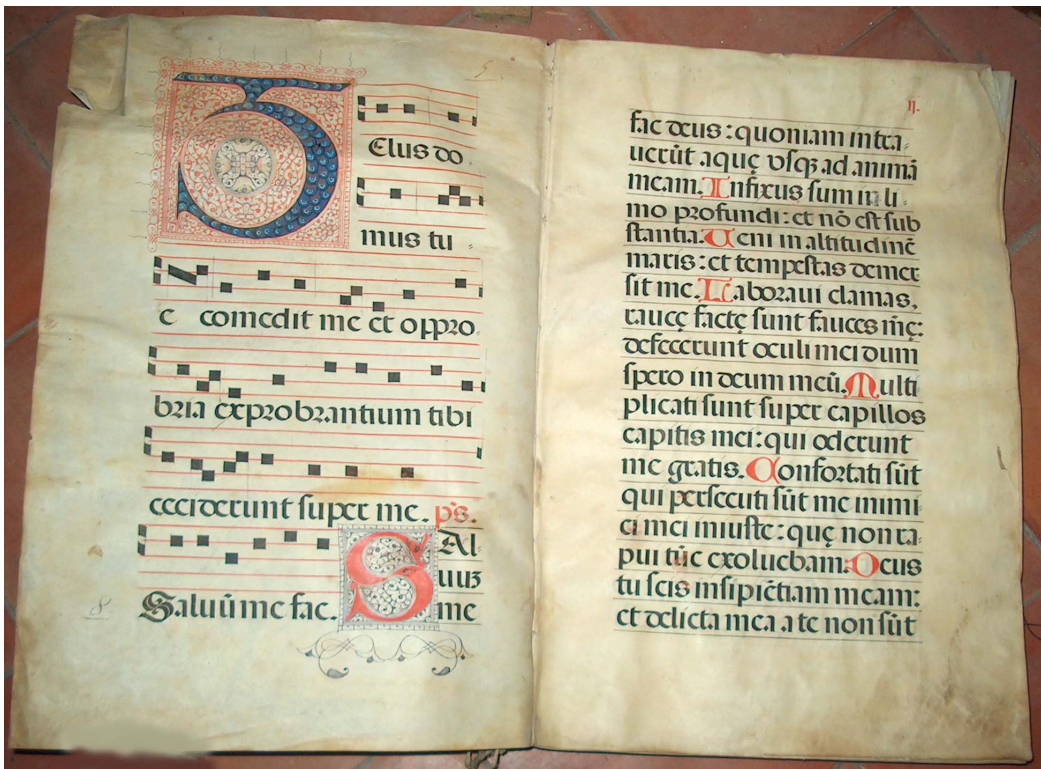 ZElus do
mus tu
e comedit me et oppro
bria exprobrantium tibi
ceciderunt super me. p̄s.
SAl
uuȝ
Saluū me fac. me
8
ij.
fac deus: quoniam intra
uerūt aquę vsqȝ ad animā
meam. Infixus sum in li
mo profundi: et nō est sub
stantia. Ueni in altitudinē
maris: et tempestas demer
sit me. Laboraui clamas,
raucę factę sunt fauces mę:
defecerunt oculi mei dum
spero in deum meū. Multi
plicati sunt super capillos
capitis mei: qui oderunt
me gratis. Confortati sūt
qui persecuti sūt me inimi
ci mei iniuste: quę non ra
pui tūc exoluebam. Deus
tu scis insipiētiam meam:
et delicta mea a te non sūt